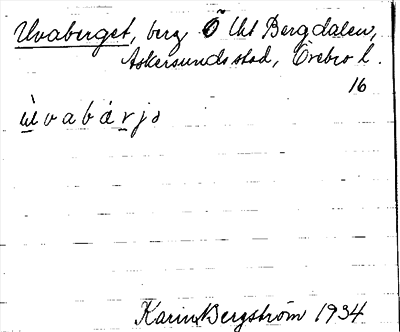 Uvaberget, berg Ö Ut Bergdalen,
Askersunds stad, Örebro l.
16
ùvabárjə
Karin Bergström 1934